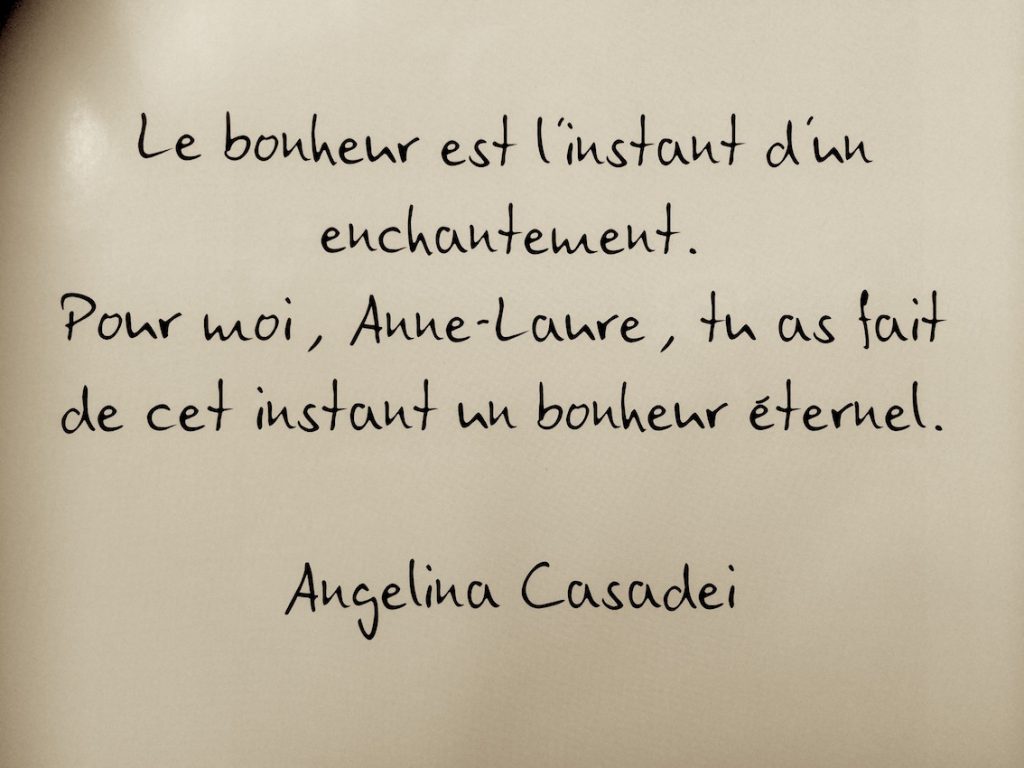 Le bonheur est l'instant d'un
enchantement.
Pour moi, Anne-Laure, tu as fait
de cet instant un bonheur éternel.
Angelina Casadei